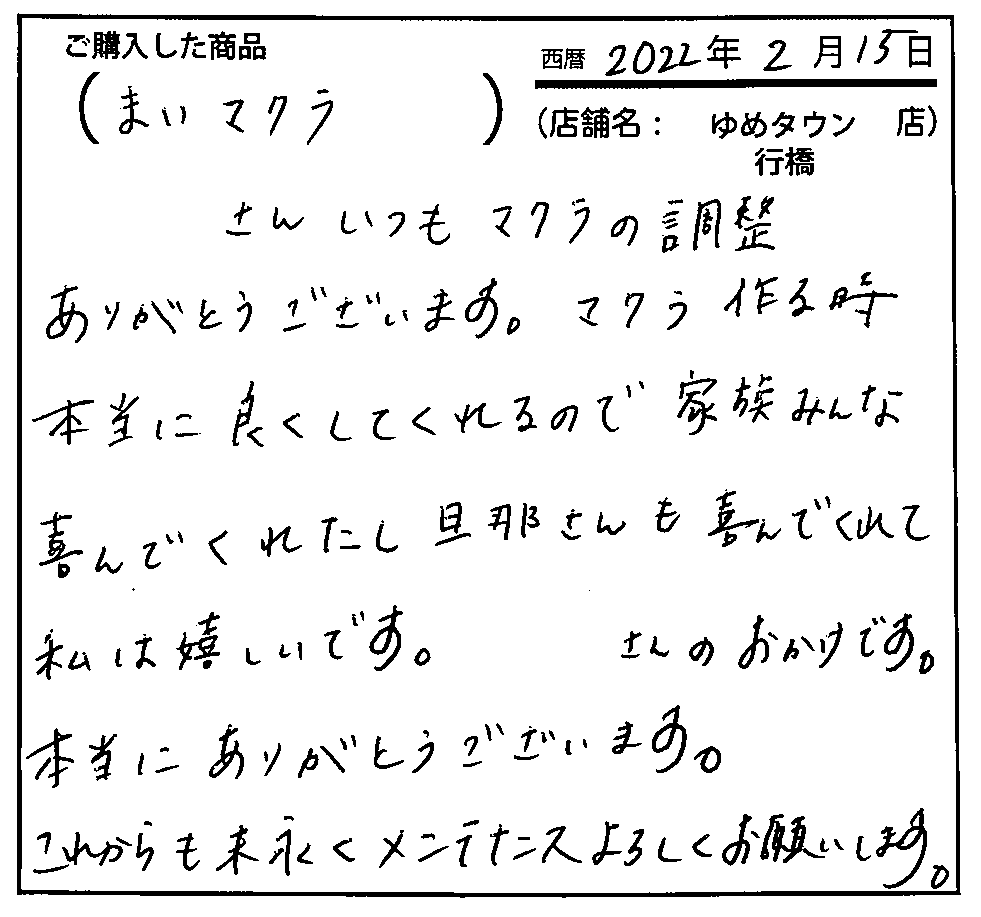 ご購入した商品
(まいマクラ)
西暦 2022年 2月15日
(店舗名: ゆめタウン 店)
行橋
さん いつも マクラの調整
ありがとうございます。マクラ 作る時
本当に良くしてくれるので 家族みんな
喜んでくれたし 旦那さんも喜んでくれて
私は嬉しいです。 さんのおかげです。
本当にありがとうございます。
これからも末永くメンテナンスよろしくお願いします。